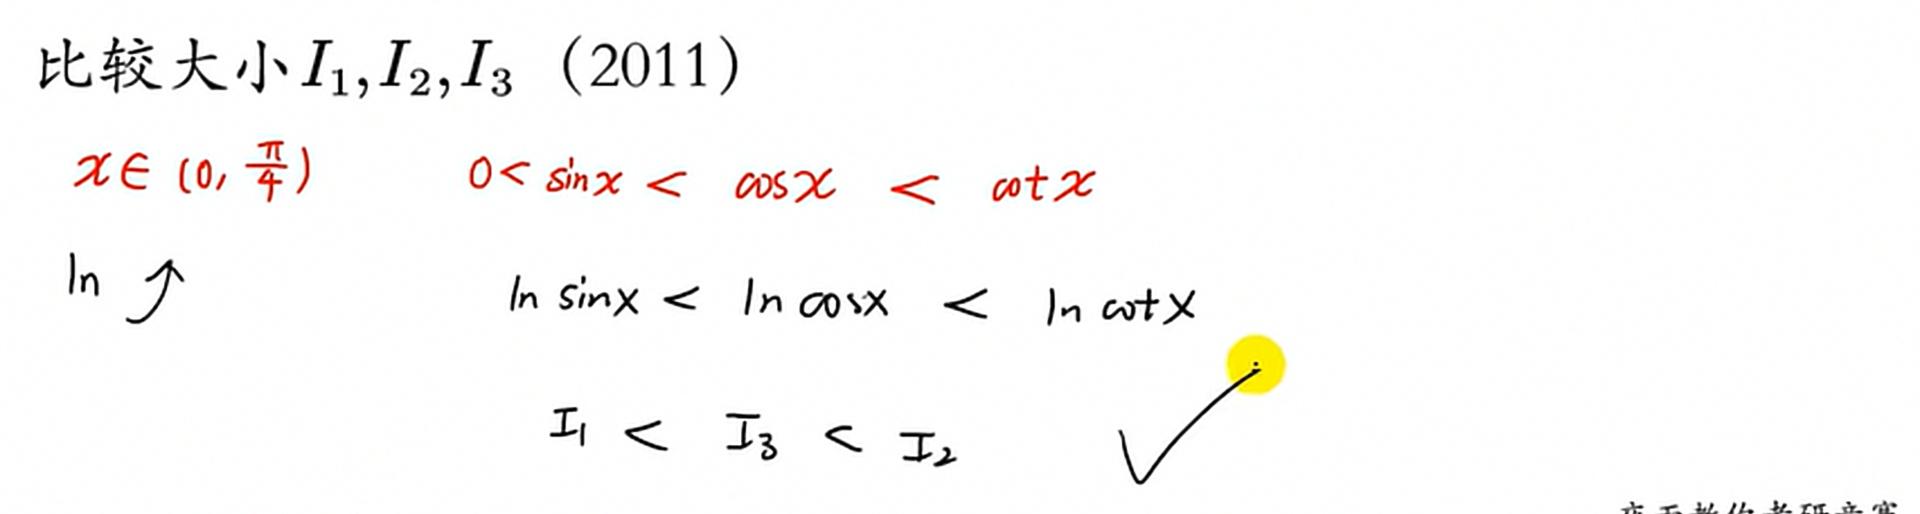 比较大小I₁,I₂,I₃（2011）
x∈(0,π/4) 0<sinx< cosx < cotx
ln ↑ ln sinx < ln cosx < ln cotx
I₁ < I₃ < I₂ ✓